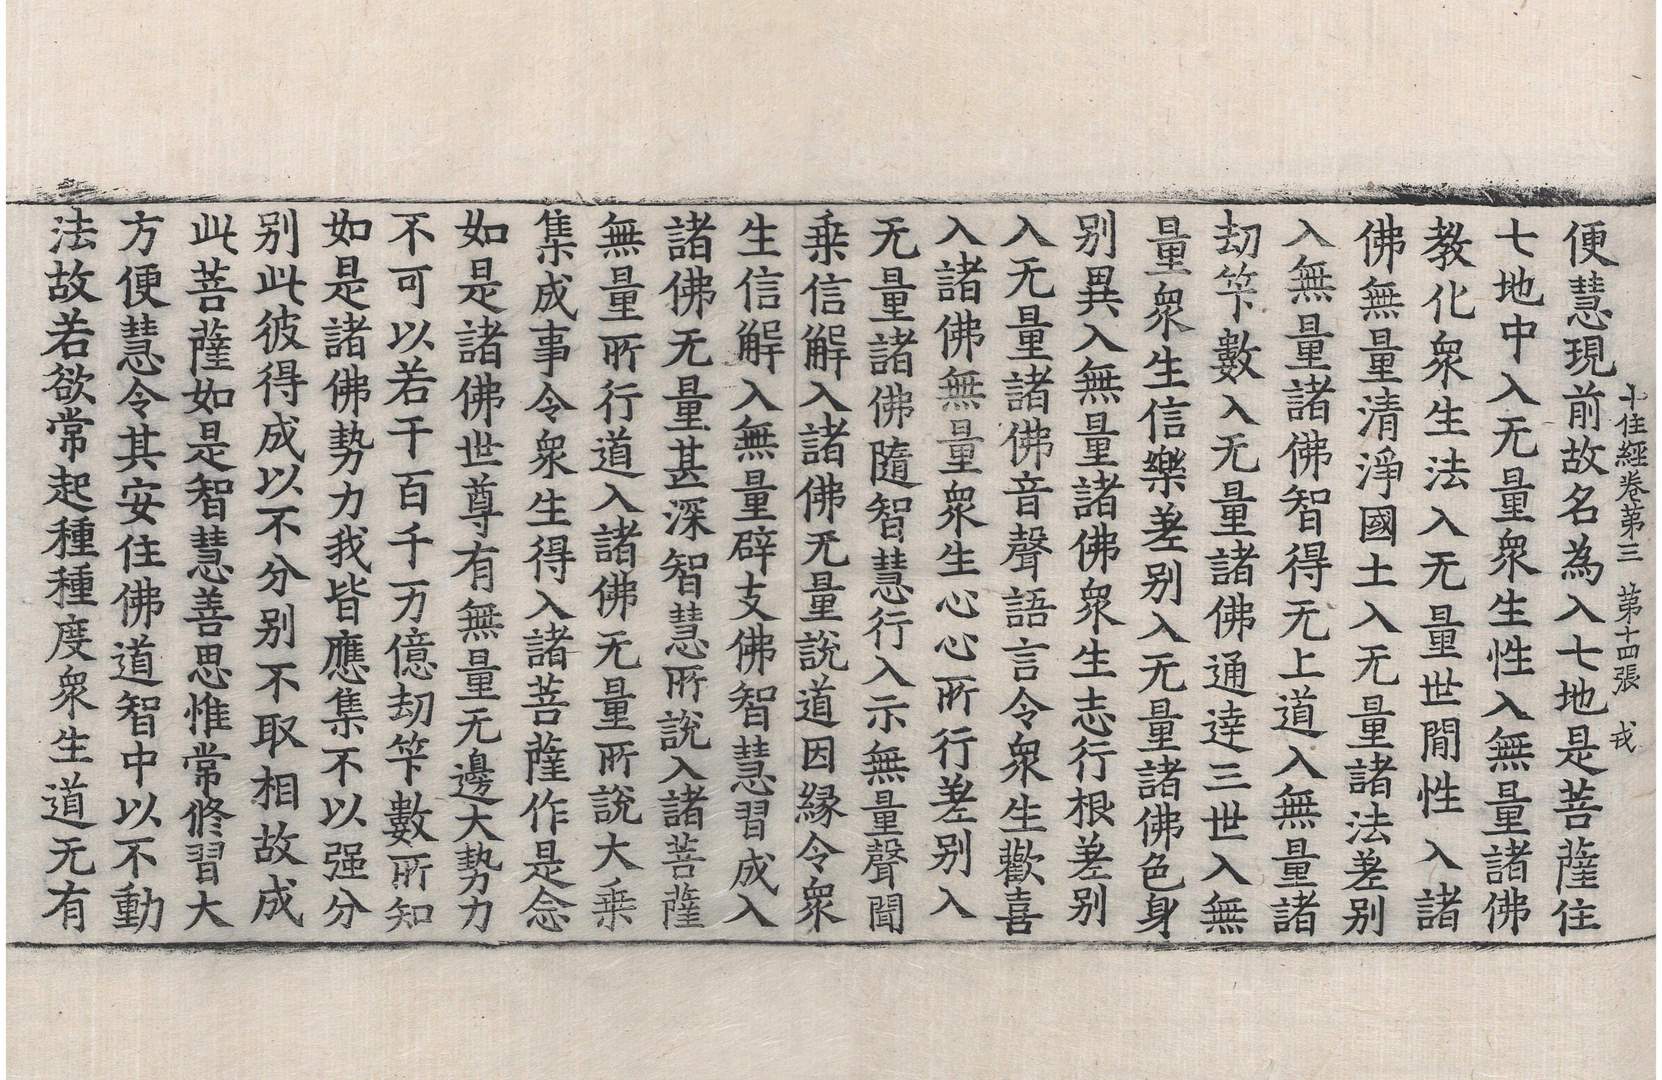 十住經卷第三　第十四張　戎
便慧現前故名為入七地是菩薩住
七地中入无量衆生性入無量諸佛
教化衆生法入无量世閒性入諸
佛無量清淨國土入无量諸法差別
入無量諸佛智得无上道入無量諸
劫筭數入无量諸佛通達三世入無
量衆生信樂差別入无量諸佛色身
別異入無量諸佛衆生志行根差別
入无量諸佛音聲語言令衆生歡喜
入諸佛無量衆生心心所行差別入
无量諸佛隨智慧行入示無量聲聞
乗信解入諸佛无量說道因縁令衆
生信解入無量辟支佛智慧習成入
諸佛无量甚深智慧所說入諸菩薩
無量所行道入諸佛无量所說大乗
集成事令衆生得入諸菩薩作是念
如是諸佛世尊有無量无邊大勢力
不可以若干百千万億劫筭數所知
如是諸佛勢力我皆應集不以强分
別此彼得成以不分別不取相故成
此菩薩如是智慧善思惟常修習大
方便慧令其安住佛道智中以不動
法故若欲常起種種度衆生道无有